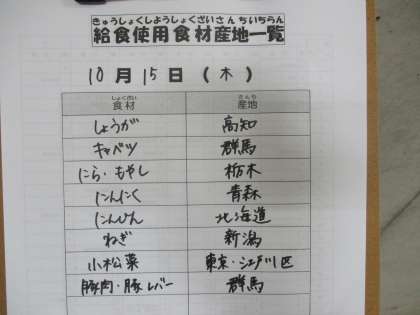 きゅうしょくしようしょくざいさんちいちらん
給食使用食材産地一覧
10月15日（木）
しょくざい さんち
食材 産地
しょうが 高知
キャベツ 群馬
にら・もやし 栃木
にんにく 青森
にんじん 北海道
ねぎ 新潟
小松菜 東京・江戸川区
豚肉・豚レバー 群馬